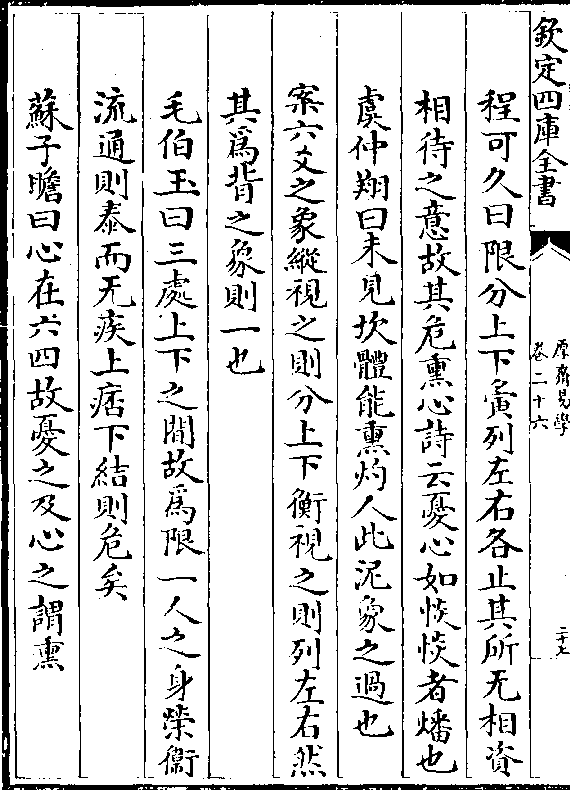 欽定四庫全書
厚齋易學
卷二十六
二十七
程可久曰限分上下夤列左右各止其所无相資
相待之意故其危熏心詩云憂心如惔惔者燔也
虞仲翔曰未見坎體能熏灼人此泥象之過也
案六爻之象縱視之則分上下衡視之則列左右然
其爲背之象則一也
毛伯玉曰三處上下之間故爲限一人之身榮衞
流通則泰而无疾上痞下結則危矣
蘇子瞻曰心在六四故憂之及心之謂熏